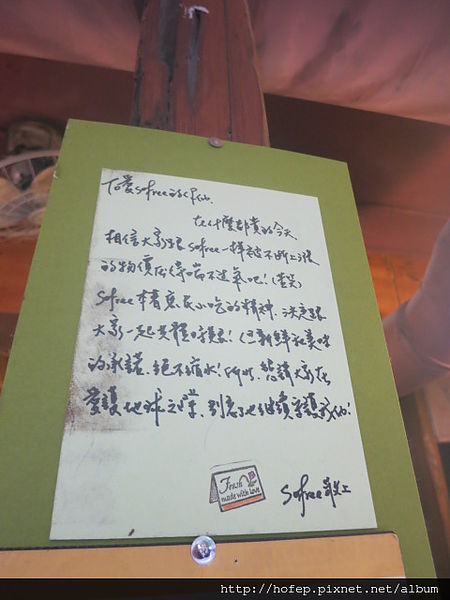 給愛sofree的人們
在什麼都貴的今天
相信大家跟sofree一樣被不斷上漲
的物價壓得喘不過氣吧!(苦笑)
sofree本著庶民小吃的精神,決定跟
大家一起共體時艱!(但新鮮和美味
的承諾,絕不縮水!)所以,懇請大家在
愛護地球之餘,別忘了也繼續愛護我們!
Fresh
made with love
sofree 敬上
http://hofep.pixnet.net/album